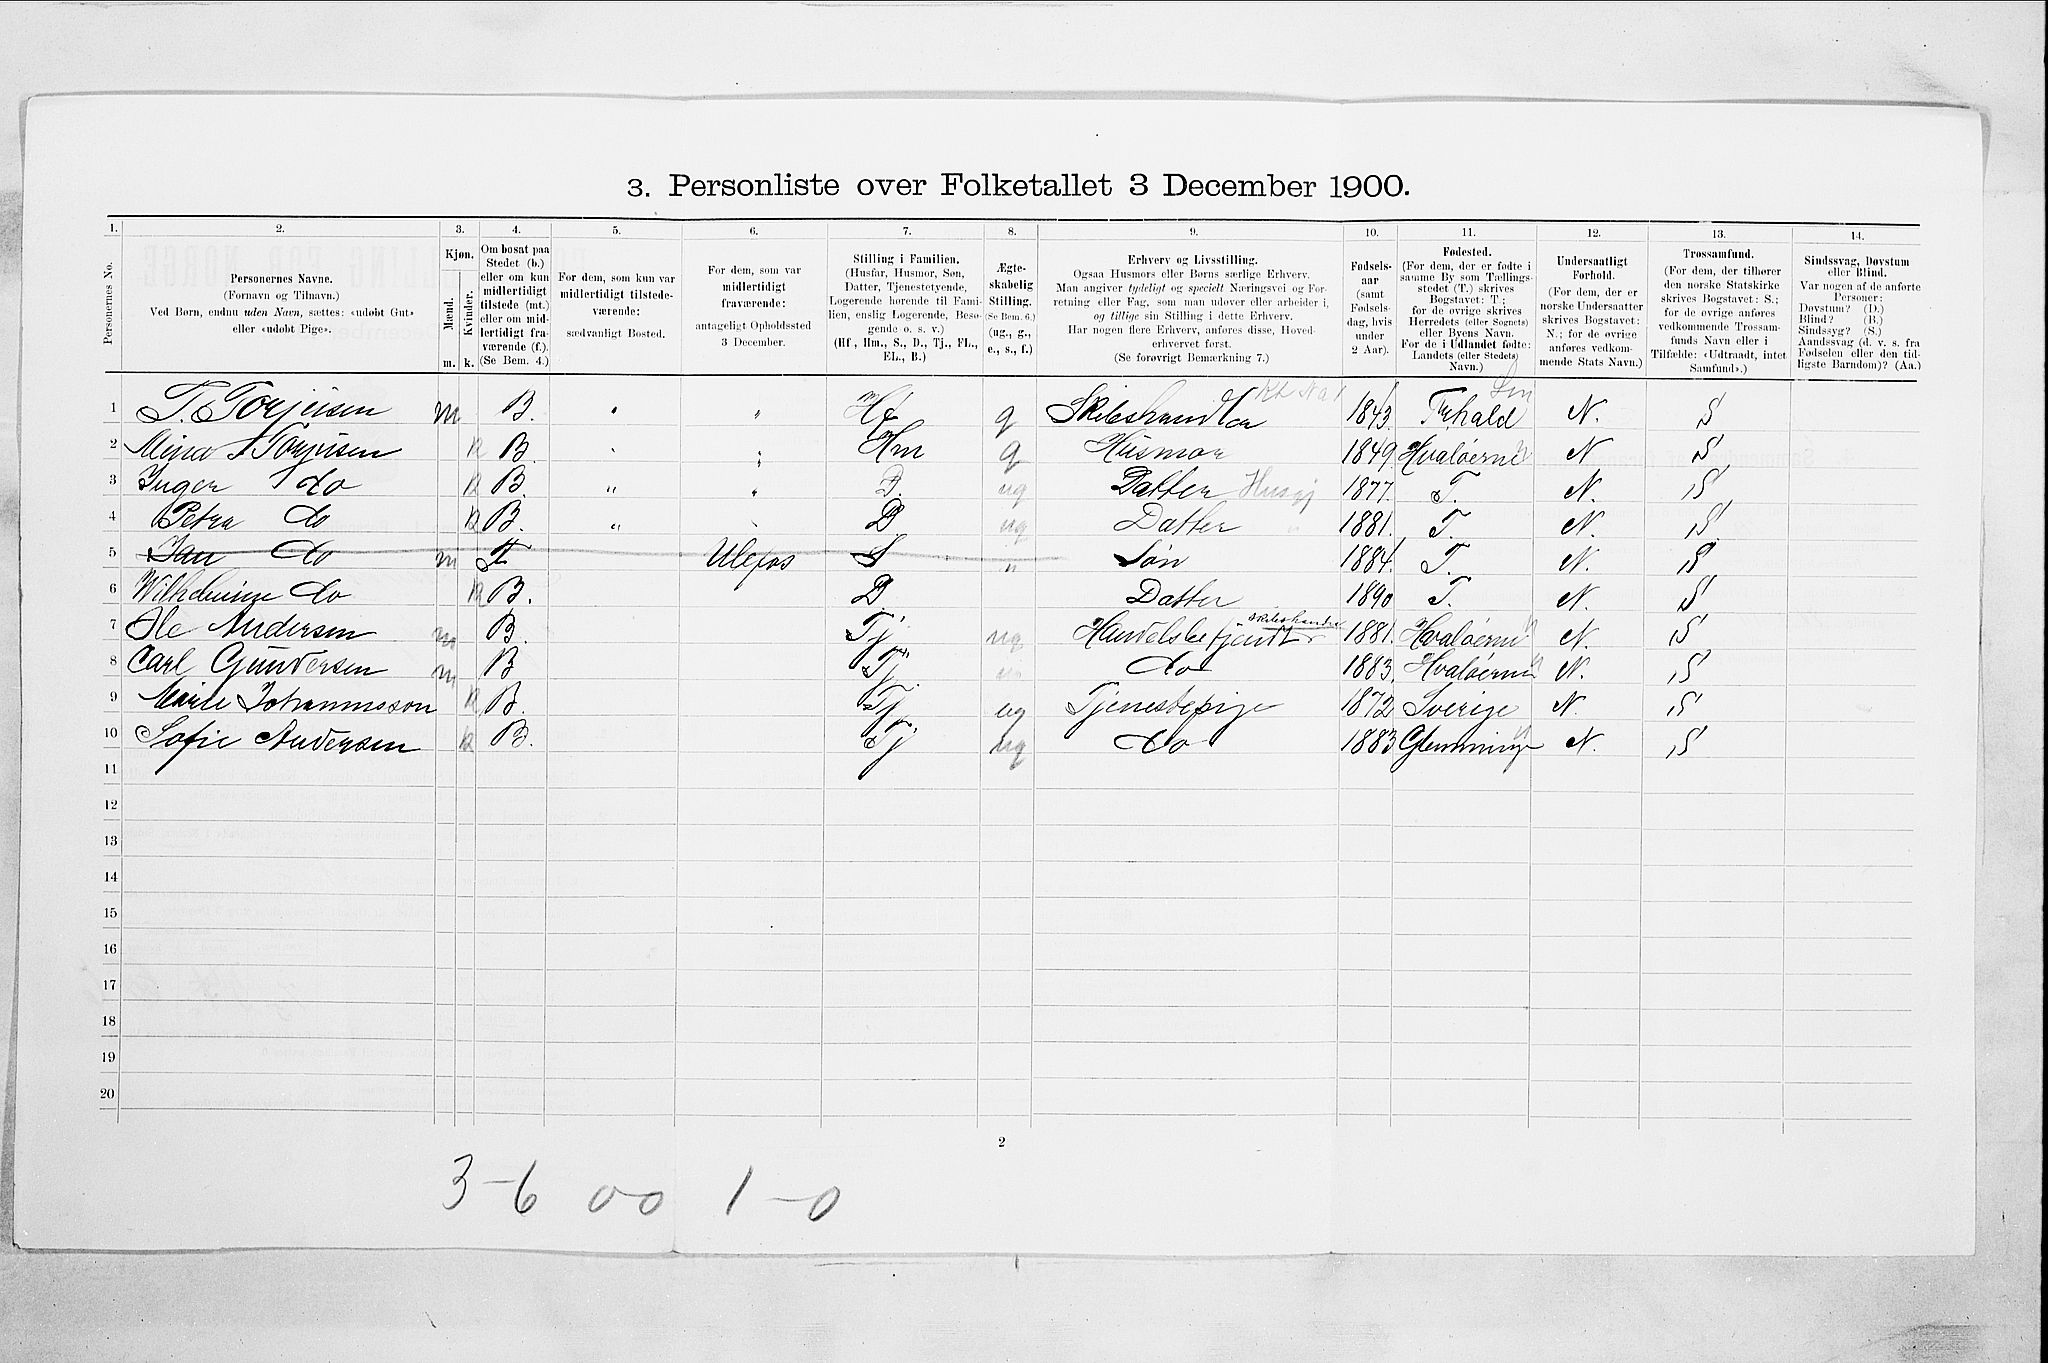 3. Personliste over Folketallet 3 December 1900.
1. 2. 3. 4. 5. 6. 7. 8. 9. 10. 11. 12. 13. 14.
Personernes No.
Personernes Navne.
(Fornavn og Tilnavn.)
Ved Børn, endnu uden Navn, sættes: «udøbt Gut»
eller «udøbt Pige».
Kjøn.
Mænd. Kvinder.
m. k.
Om bosat paa
Stedet (b.)
eller om kun
midlertidigt
tilstede (mt.)
eller om mid-
lertidigt fra-
værende (f.).
(Se Bem. 4.)
For dem, som kun var
midlertidigt tilstede-
værende:
sædvanligt Bosted.
For dem, som var
midlertidigt
fraværende:
antageligt Opholdssted
3 December.
Stilling i Familien.
(Husfar, Husmor, Søn,
Datter, Tjenestetyende,
Logerende hørende til Fami-
lien, enslig Logerende, Besø-
gende o. s. v.)
(Hf., Hm., S., D., Tj., FL.,
EL., B.)
Ægte-
skabelig
Stilling.
(Se Bem. 6.)
(ug., g.,
e., s., f.)
Erhverv og Livsstilling.
Ogsaa Husmors eller Børns særlige Erhverv.
Man angiver tydeligt og specielt Næringsvei og For-
retning eller Fag, som man udøver eller arbeider i,
og tillige sin Stilling i dette Erhverv.
Har nogen flere Erhverv, anføres disse, Hoved-
erhvervet først.
(Se forøvrigt Bemærkning 7.)
Fødsels-
aar
(samt
Fødsels-
dag, hvis
under
2 Aar).
Fødested.
(For dem, der er fødte i
samme By som Tællings-
stedet (T.) skrives
Bogstavet: T.;
for de øvrige skrives
Herredets (eller Sognets)
eller Byens Navn.
For de i Udlandet fødte:
Landets (eller Stedets)
Navn.)
Undersaatligt
Forhold.
(For dem, der er
norske Undersaatter
skrives Bogstavet:
N.; for de øvrige
anføres vedkom-
mende Stats Navn.)
Trossamfund.
(For dem, der tilhører
den norske Statskirke
skrives Bogstavet: S.;
for de øvrige anføres
vedkommende Trossam-
funds Navn eller i
Tilfælde: «Udtraadt, intet
Samfund».)
Sindssvag, Døvstum
eller Blind.
Var nogen af de anførte
Personer:
Døvstum? (D.)
Blind? (B.)
Sindssyg? (S.)
Aandssvag (d. v. s. fra
Fødselen eller den tid-
ligste Barndom)? (Aa.)
1 T. Torjeisen m B. " " Hf g Skibshandler 1843 N. S
2 Mina Torjeisen k B. " " Hm g Husmor 1849 Hvaløerne N S
3 Inger do k B. " " D. ug Datter Husgj 1877. T. N. S
4 Petra do k B. " " D ug Datter " 1881. T. N. S
5 Jan do m f Ulefos S " Søn 1884. T. N. S
6 Wilhelmine do k B. D Datter 1890 T. N. S
7 Ole Andersen m B. Tj ug Handelsbetjendt 1881. Hvaløerne N. S
8 Carl Gundersen m B Tj do 1883. Hvaløerne N. S
9 Marie Johannsson k B. Tj ug Tjenestepige 1872 Sverige N. S
10 Sofie Andersen k B. Tj ug do 1883 Glemminge N. S
11
12
13
14
15
16
17
18
19
20
2
3-6 00 1-0